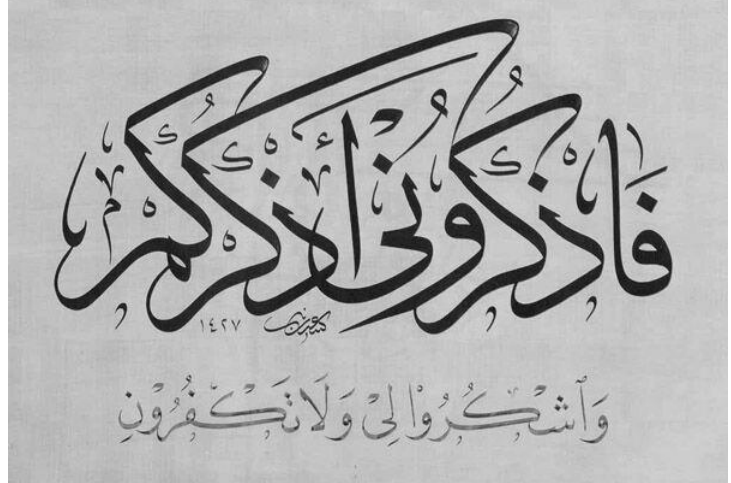 فَاذْكُرُونِي أَذْكُرْكُمْ
١٤٢٧
وَٱشْكُرُوا۟ لِي وَلَا تَكْفُرُونِ